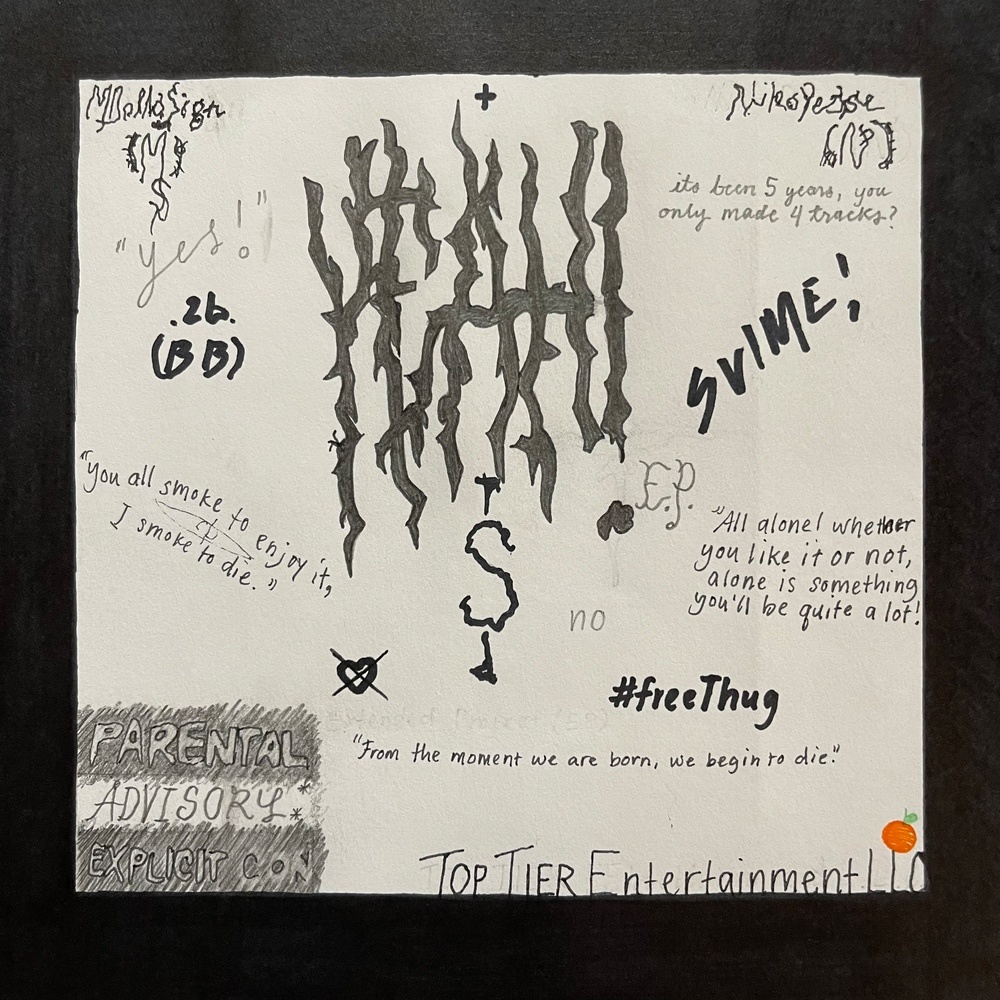 MDollaSign
(M)
$
"yes!"
.26.
(BB)
NikoPe23e
(N)
its been 5 years, you
only made 4 tracks?
SVIME!
E.P.
"you all smoke to enjoy it,
I smoke to die."
"All alone! whether
you like it or not,
alone is something
you'll be quite a lot!"
S
no
#freeThug
"From the moment we are born, we begin to die."
PARENTAL
ADVISORY*
EXPLICIT CON
TOP TIER Entertainment LLC